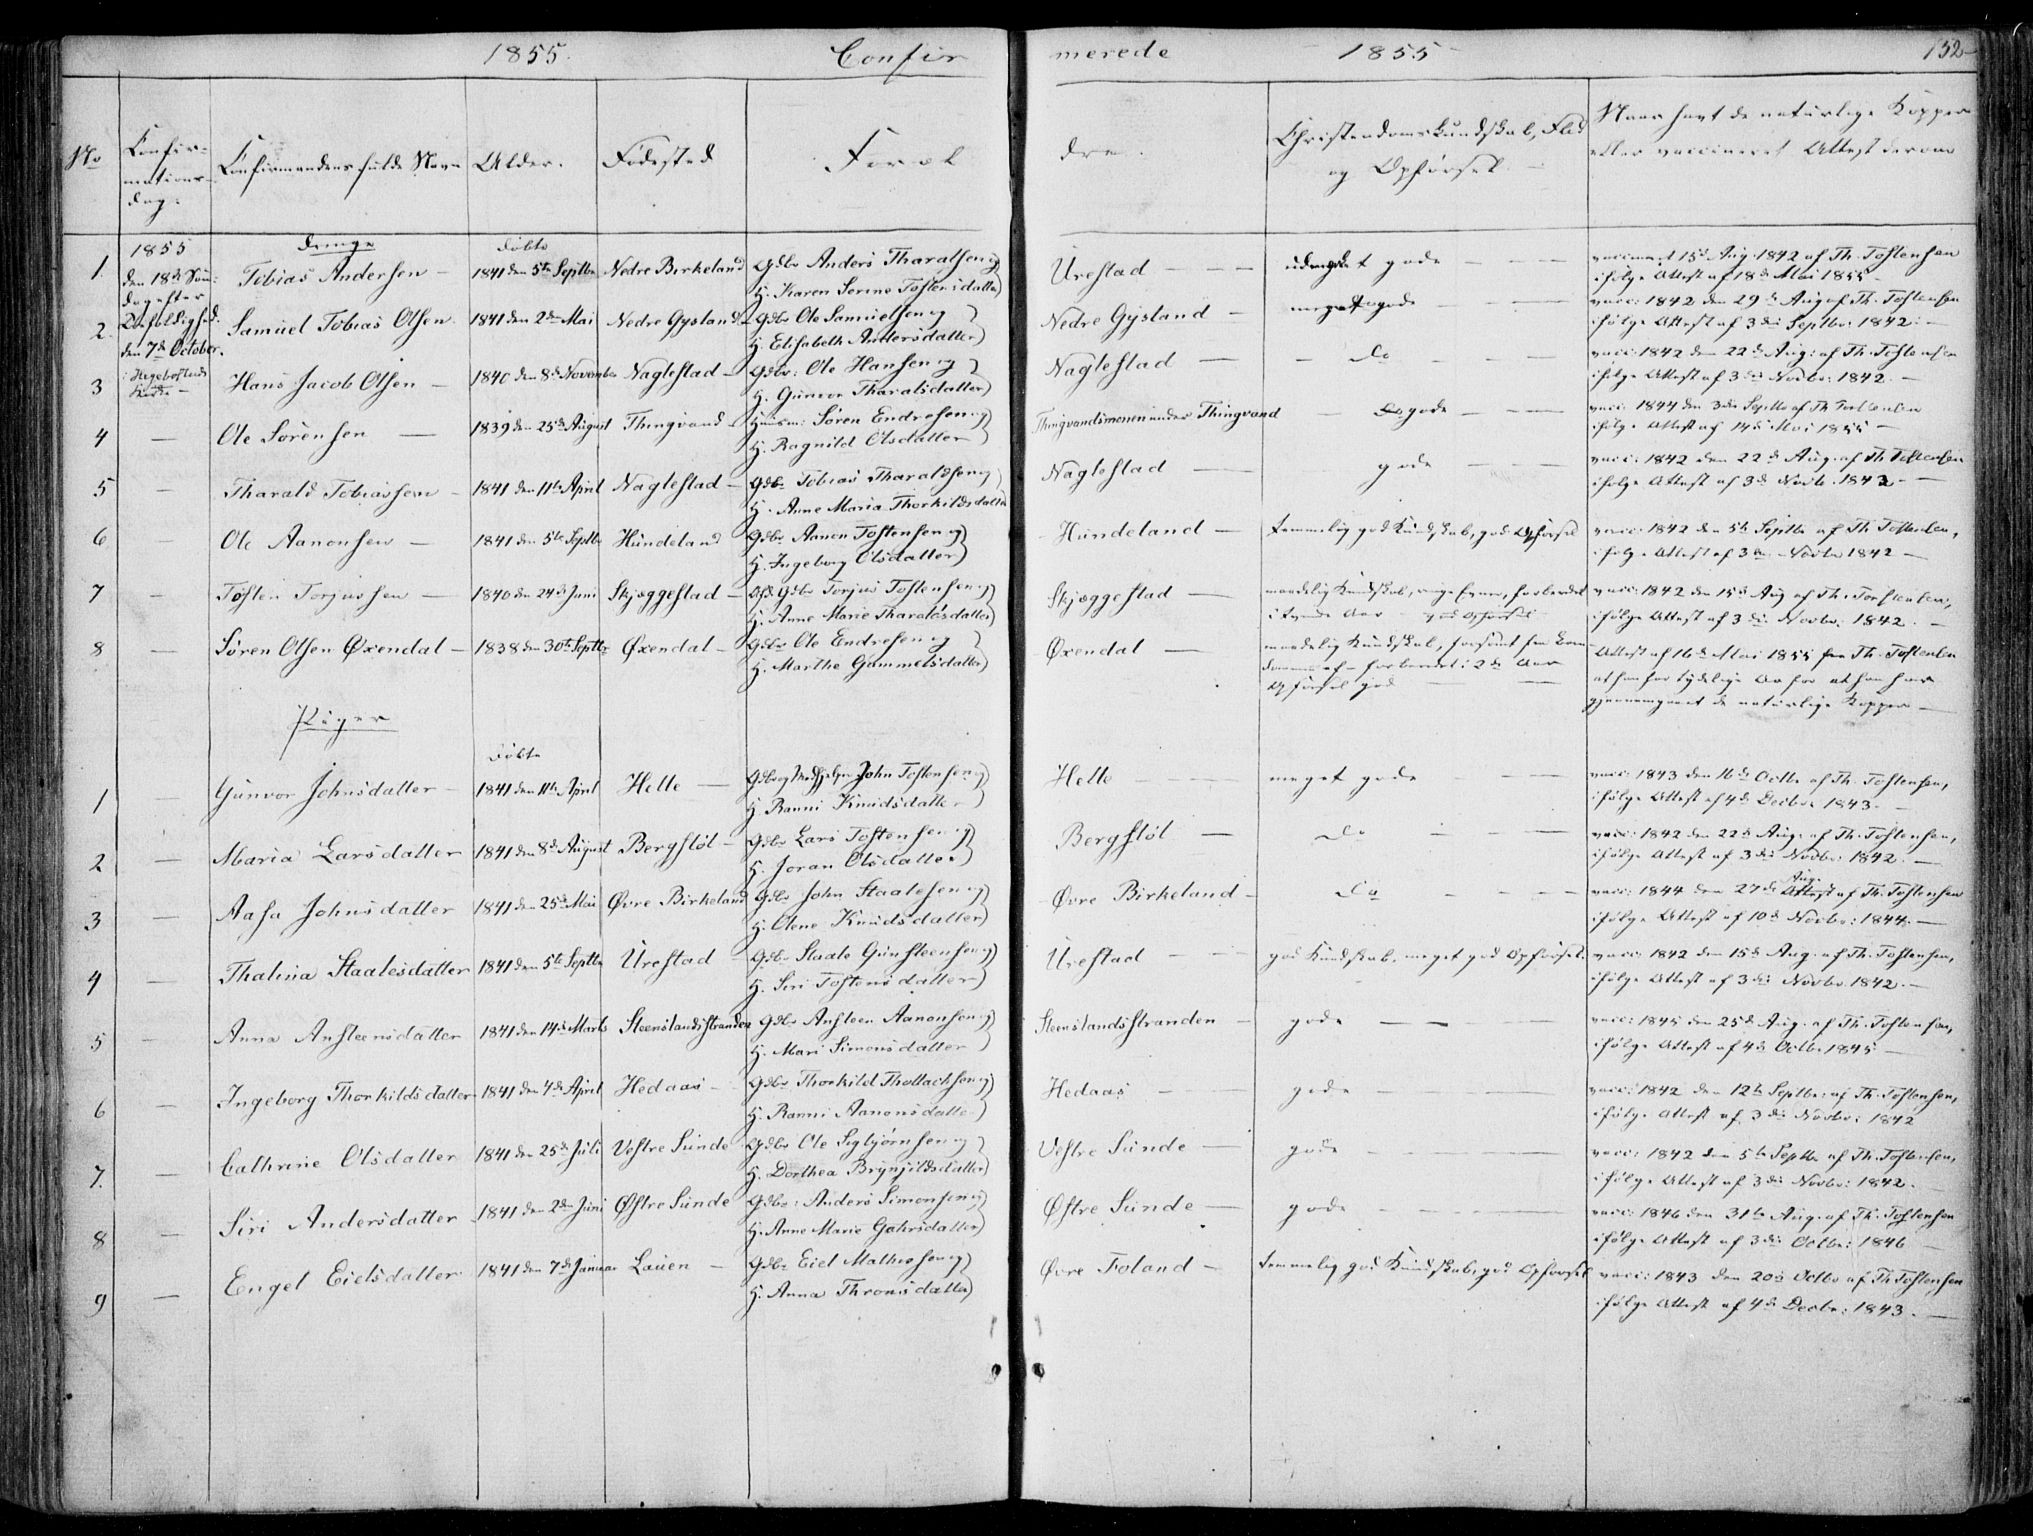 1855. Confirmerede 1855 132
No Confirmations-dag. Confirmandens fulde Navn Alder. Fødested Foreldre. Christendomskundskab, Flid og Opførsel. Naar havt de naturlige Kopper eller vaccineret Attest derom
1855 Drenge Døbte
1. den 18de Søndag efter Trefoldighed. den 7de October. Hegebostads Kirke — Tobias Andersen — 1841 den 5te Septbr Nedre Birkeland Gdbr Anders Tharalsen og
H. Karen Serine Tostensdatter) Urestad — — — gode — — — vaccineret 15de Aug: 1842 af Th. Tostensen
ifølge Attest af 18de Mai 1855 —
2. Samuel Tobias Olsen 1841 den 2den Mai Nedre Gysland Gdbr Ole Samuelsen og
H. Elisabeth Andersdatter) Nedre Gysland — meget gode — — vacc: 1842 den 29de Aug af Th. Tostensen
ifølge Attest af 3die Septbr: 1842. —
3 Hans Jacob Olsen — 1840 den 8de November Naglestad — Gdbr: Ole Hansen og
H. Gunvor Tharalsdatter) Naglestad — — Do — — vacc: 1842 den 22de Aug: af Th. Tostensen
ifølge Attest af 3die Novbr: 1842. —
4 — Ole Sørensen — 1839 den 25de August Thingvand — Huusm: Søren Endresen og
H. Ragnild Olsdatter) Thingvandsmonen under Thingvand — gode — — — vacc: 1844 den 3die Septbr af Th Tostensen
ifølge Attest af 14de Mai 1855 —
5 — Tharald Tobiassen — 1841 den 11te April Naglestad — Gdbr Tobias Tharaldsen og
H. Anne Maria Thorkildsdatter Naglestad — gode — — vacc: 1842 den 22de Aug. af Th. Tostensen
ifølge Attest af 3die Novbr. 1842 —
6 — Ole Aanonsen — 1841 den 5te Septbr Hundeland Gdbr Aanon Tostensen og
H. Ingeborg Olsdatter) Hundeland — temmelig god Kundskab, god Opførsel vacc: 1842 den 5te Septbr af Th. Tostensen,
ifølge Attest af 3die Novbr 1842 —
7 — Tosten Torjussen — 1840 den 24de Juni Skjæggestad — Gdbr Torjus Tostensen og
H. Anne Marie Tharalsdatter) Skjæggestad — maadelig Kundskab, ringe Evner, forberedet
i tvende Aar — god Opførsel vacc: 1842 den 15de Aug af Th. Torstensen,
ifølge Attest af 3die Novbr: 1842. —
8 — Søren Olsen Øxendal — 1838 den 30te Septbr Øxendal — Gdbr Ole Endresen og
H. Marthe Gammelsdatter) Øxendal — maadelig Kundskab, forsømt fra Barndommen af — forberedet i 2de Aar
Opførsel god — Attest af 16de Mai 1855 fra Th. Tostensen
at han har tydelige Ar for at han har
gjennemgaaet de naturlige Kopper —
Piger
Døbte
1 — Gunvor Johnsdatter — 1841 den 11te April Helle — Gdbr og Medhjelper John Tostensen og
H. Ranni Knudsdatter) Helle — — — meget gode — — vacc: 1843 den 16de Octbr af Th. Tostensen,
ifølge Attest af 4de Decbr. 1843. —
2 — Maria Larsdatter 1841 den 8de August Bergstøl — Gdbr Lars Tostensen og
H. Joran Olsdatter) Bergstøl — Do — — — vacc: 1842 den 22de Aug: af Th. Tostensen,
ifølge Attest af 3die Novbr: 1842. —
3 — Aasa Johnsdatter 1841 den 25de Mai Øvre Birkeland Gdbr John Staalesen og
H. Olene Knudsdatter) Øvre Birkeland — Do — — — vacc: 1844 den 27de Aug. Attest af Th. Tostensen
ifølge Attest af 10de Novbr: 1844. —
4 — Thalina Staalesdatter 1841 den 5te Septbr Urestad Gdbr Staale Gunsteensen og
H. Siri Tostensdatter) Urestad — — — god Kundskab, meget god Opførsel. vacc: 1842 den 15de Aug. af Th. Tostensen,
ifølge Attest af 3die Novbr. 1842. —
5 — Anna Ansteensdatter 1841 den 14de Marts Steenslandsstranden Gdbr Ansteen Aanonsen og
H. Mari Simonsdatter) Steenslandsstranden — gode — — — vacc: 1845 den 25de Aug. af Th. Tostensen,
ifølge Attest af 4de Octbr 1845 —
6 — Ingeborg Thorkildsdatter 1841 den 4de April Hedaas — Gdbr Thorkild Thollachsen og
H. Ranni Aanonsdatter) Hedaas — — gode — — — vacc: 1842 den 12te Septbr: af Th. Tostensen,
ifølge Attest af 3die Novbr: 1842
7. — Cathrine Olsdatter 1841 den 25de Juli Vestre Sunde Gdbr Ole Sigbjørnsen og
H. Dorthea Brynjildsdatter) Vestre Sunde — gode — — — vacc: 1842 den 5te Septbr af Th. Tostensen,
ifølge Attest af 3die Novbr: 1842. —
8 — Siri Andersdatter 1841 den 2den Juni Østre Sunde Gdbr: Anders Simonsen og
H. Anne Marie Gahrsdatter) Østre Sunde — gode — — — vacc: 1846 den 31te Aug. af Th. Tostensen
ifølge Attest af 3die Octbr: 1846 —
9 — Engel Eielsdatter 1841 den 7de Januar Lauen — Gdbr Eiel Mathiessen og
H. Anna Thronsdatter) Øvre Foland — temmelig god Kundskab, god Opførsel vacc: 1843 den 20de Octbr af Th Tostensen
ifølge Attest af 4de Decbr: 1843. —